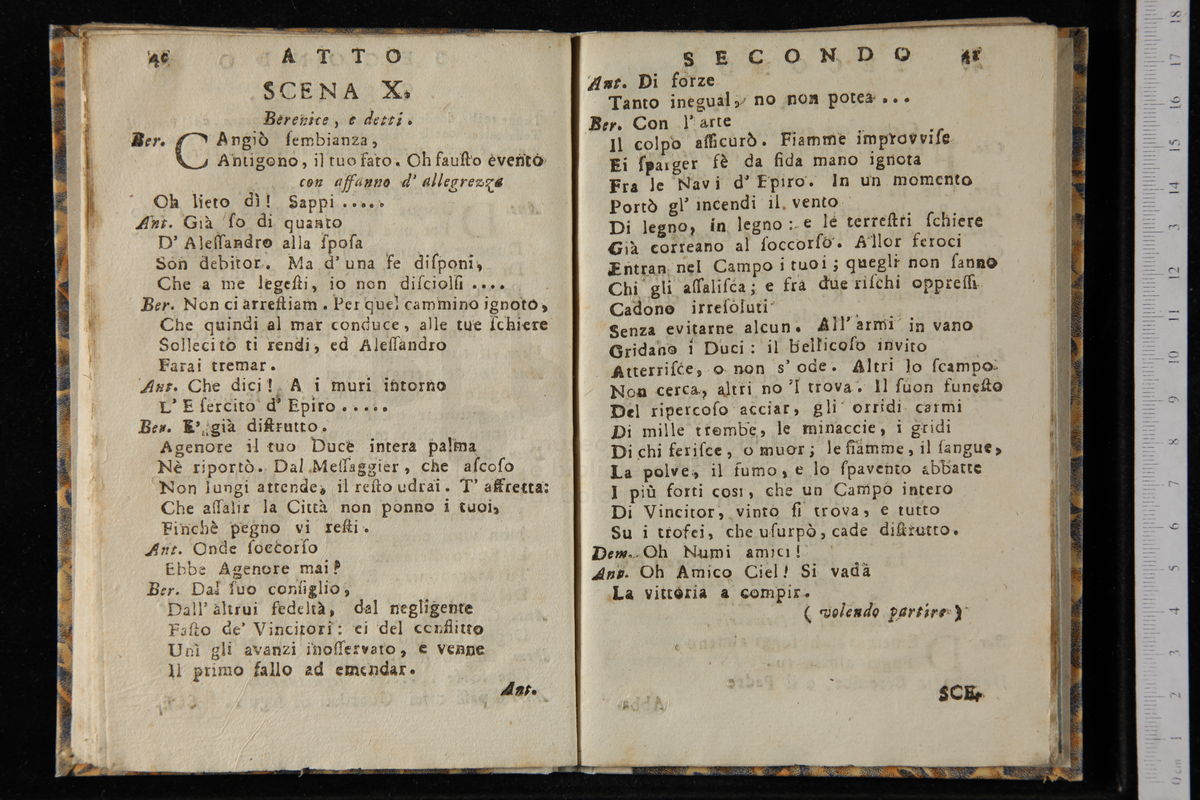 40 ATTO
SCENA X.
Berenice, e detti.
Ber. CAngiò ſembianza,
Antigono, il tuo fato. Oh fauſto evento
con affanno d' allegrezza
Oh lieto dì! Sappi .....
Ant. Già ſo di quanto
D' Aleſſandro alla ſpoſa
Son debitor. Ma d' una fe diſponi,
Che a me legeſti, io non diſciolſi ....
Ber. Non ci arreſtiam. Per quel cammino ignoto,
Che quindi al mar conduce, alle tue ſchiere
Sollecito ti rendi, ed Aleſſandro
Farai tremar.
Ant. Che dici! A i muri intorno
L' Eſercito d' Epiro .....
Ber. E' già diſtrutto.
Agenore il tuo Duce intera palma
Nè riportò. Dal Meſſaggier, che aſcoſo
Non lungi attende, il reſto udrai. T' affretta:
Che aſſalir la Città non ponno i tuoi,
Finchè pegno vi reſti.
Ant. Onde ſoccorſo
Ebbe Agenore mai?
Ber. Dal ſuo conſiglio,
Dall' altrui fedeltà, dal negligente
Faſto de' Vincitori: ei del conflitto
Unì gli avanzi inoſſervato, e venne
Il primo fallo ad emendar.
Ant.
SECONDO 41
Ant. Di forze
Tanto inegual, no non potea ...
Ber. Con l' arte
Il colpo aſſicurò. Fiamme improvviſe
Ei ſparger fè da fida mano ignota
Fra le Navi d' Epiro. In un momento
Portò gl' incendi il vento
Di legno, in legno: e le terreſtri ſchiere
Già correano al ſoccorſo. Allor feroci
Entran nel Campo i tuoi; quegli non ſanno
Chi gli aſſaliſca; e fra due riſchi oppreſſi
Cadono irreſoluti
Senza evitarne alcun. All' armi in vano
Gridano i Duci: il bellicoſo invito
Atterriſce, o non s' ode. Altri lo ſcampo
Non cerca, altri no 'l trova. Il ſuon funeſto
Del ripercoſo acciar, gli orridi carmi
Di mille trombe, le minaccie, i gridi
Di chi feriſce, o muor; le fiamme, il ſangue,
La polve, il fumo, e lo ſpavento abbatte
I più forti così, che un Campo intero
Di Vincitor, vinto ſi trova, e tutto
Su i trofei, che uſurpò, cade diſtrutto.
Dem. Oh Numi amici!
Ant. Oh Amico Ciel! Si vada
La vittoria a compir.
(volendo partire)
SCE.